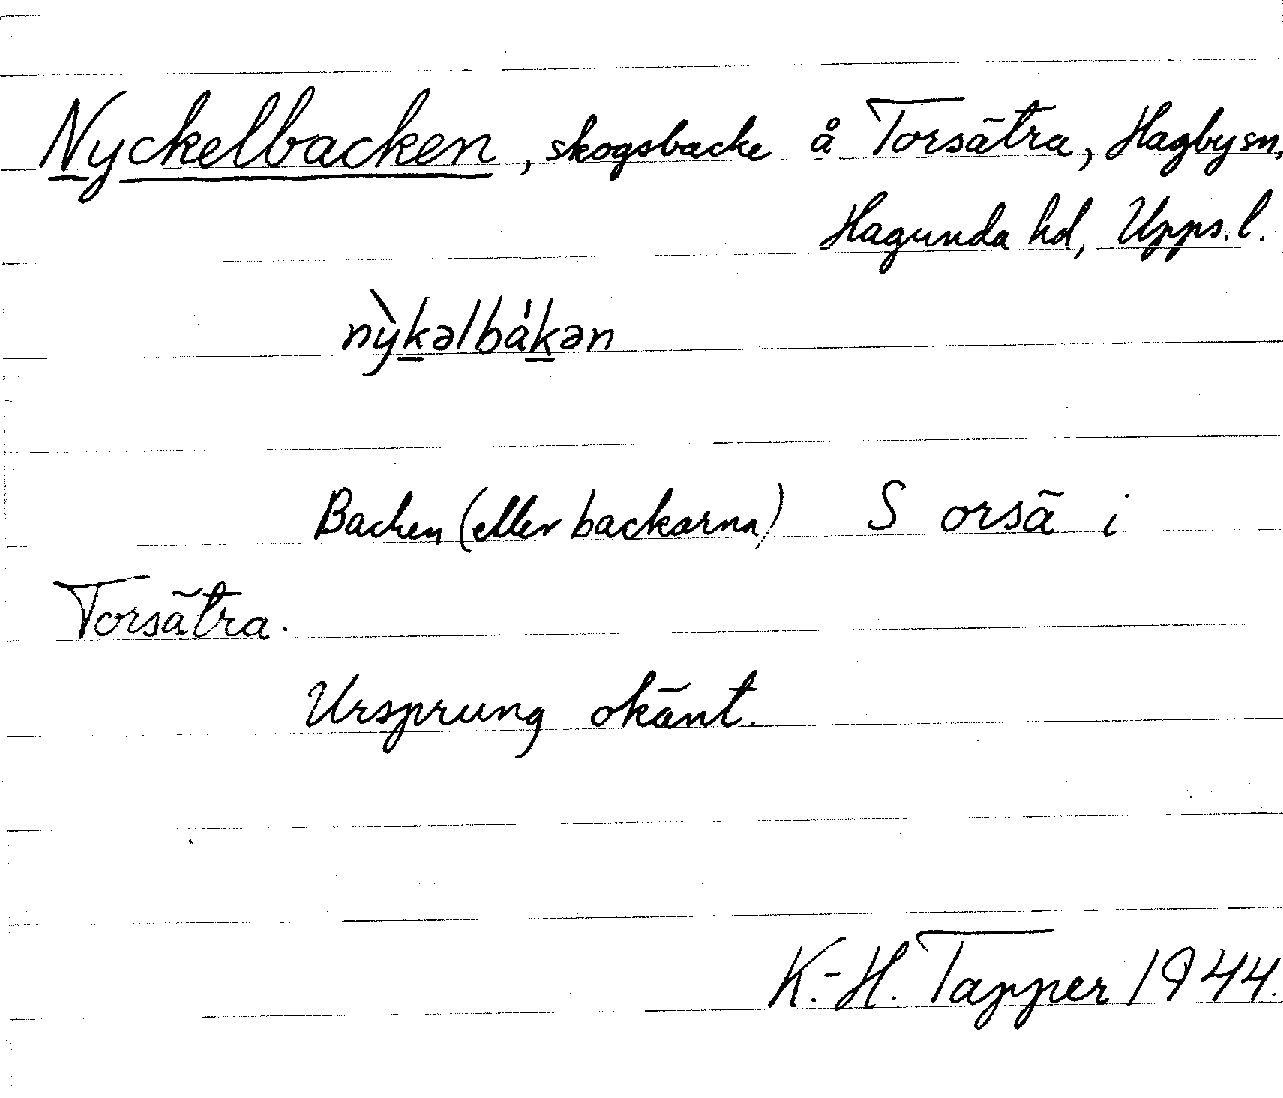 Nyckelbacken, skogsbacke å Torsätra, Hagby sn,
Hagunda hd, Upps. l.
nỳkəlbákən
Backen (eller backarna) S orsä i
Torsätra.
Ursprung okänt.
K.-H. Tapper 1944.